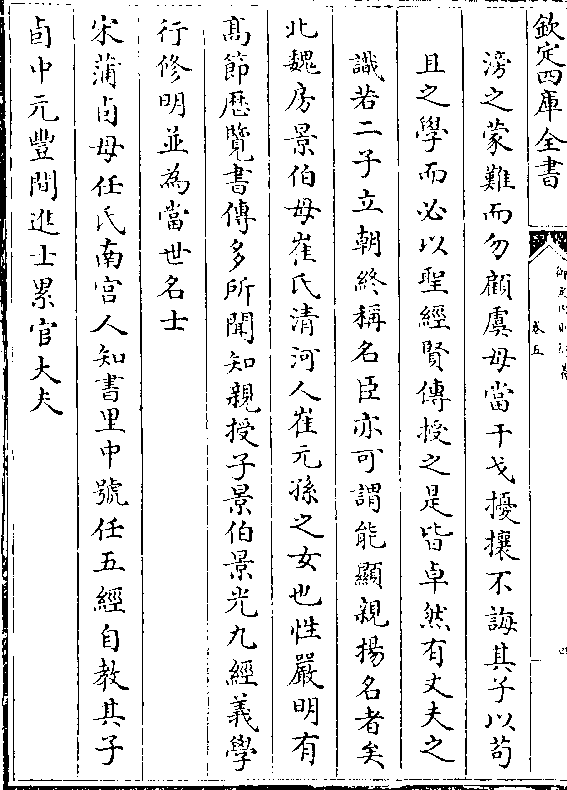 欽定四庫全書
卷五
滂之蒙難而勿顧虞母當干戈擾攘不誨其子以苟
且之學而必以聖經賢傳授之是皆卓然有丈夫之
識若二子立朝終稱名臣亦可謂能顯親揚名者矣
北魏房景伯母崔氏清河人崔元孫之女也性嚴明有
高節歴覽書傳多所聞知親授子景伯景光九經義學
行修明並為當世名士
宋蒲卣母任氏南宫人知書里中號任五經自教其子
卣中元豐間進士累官大夫